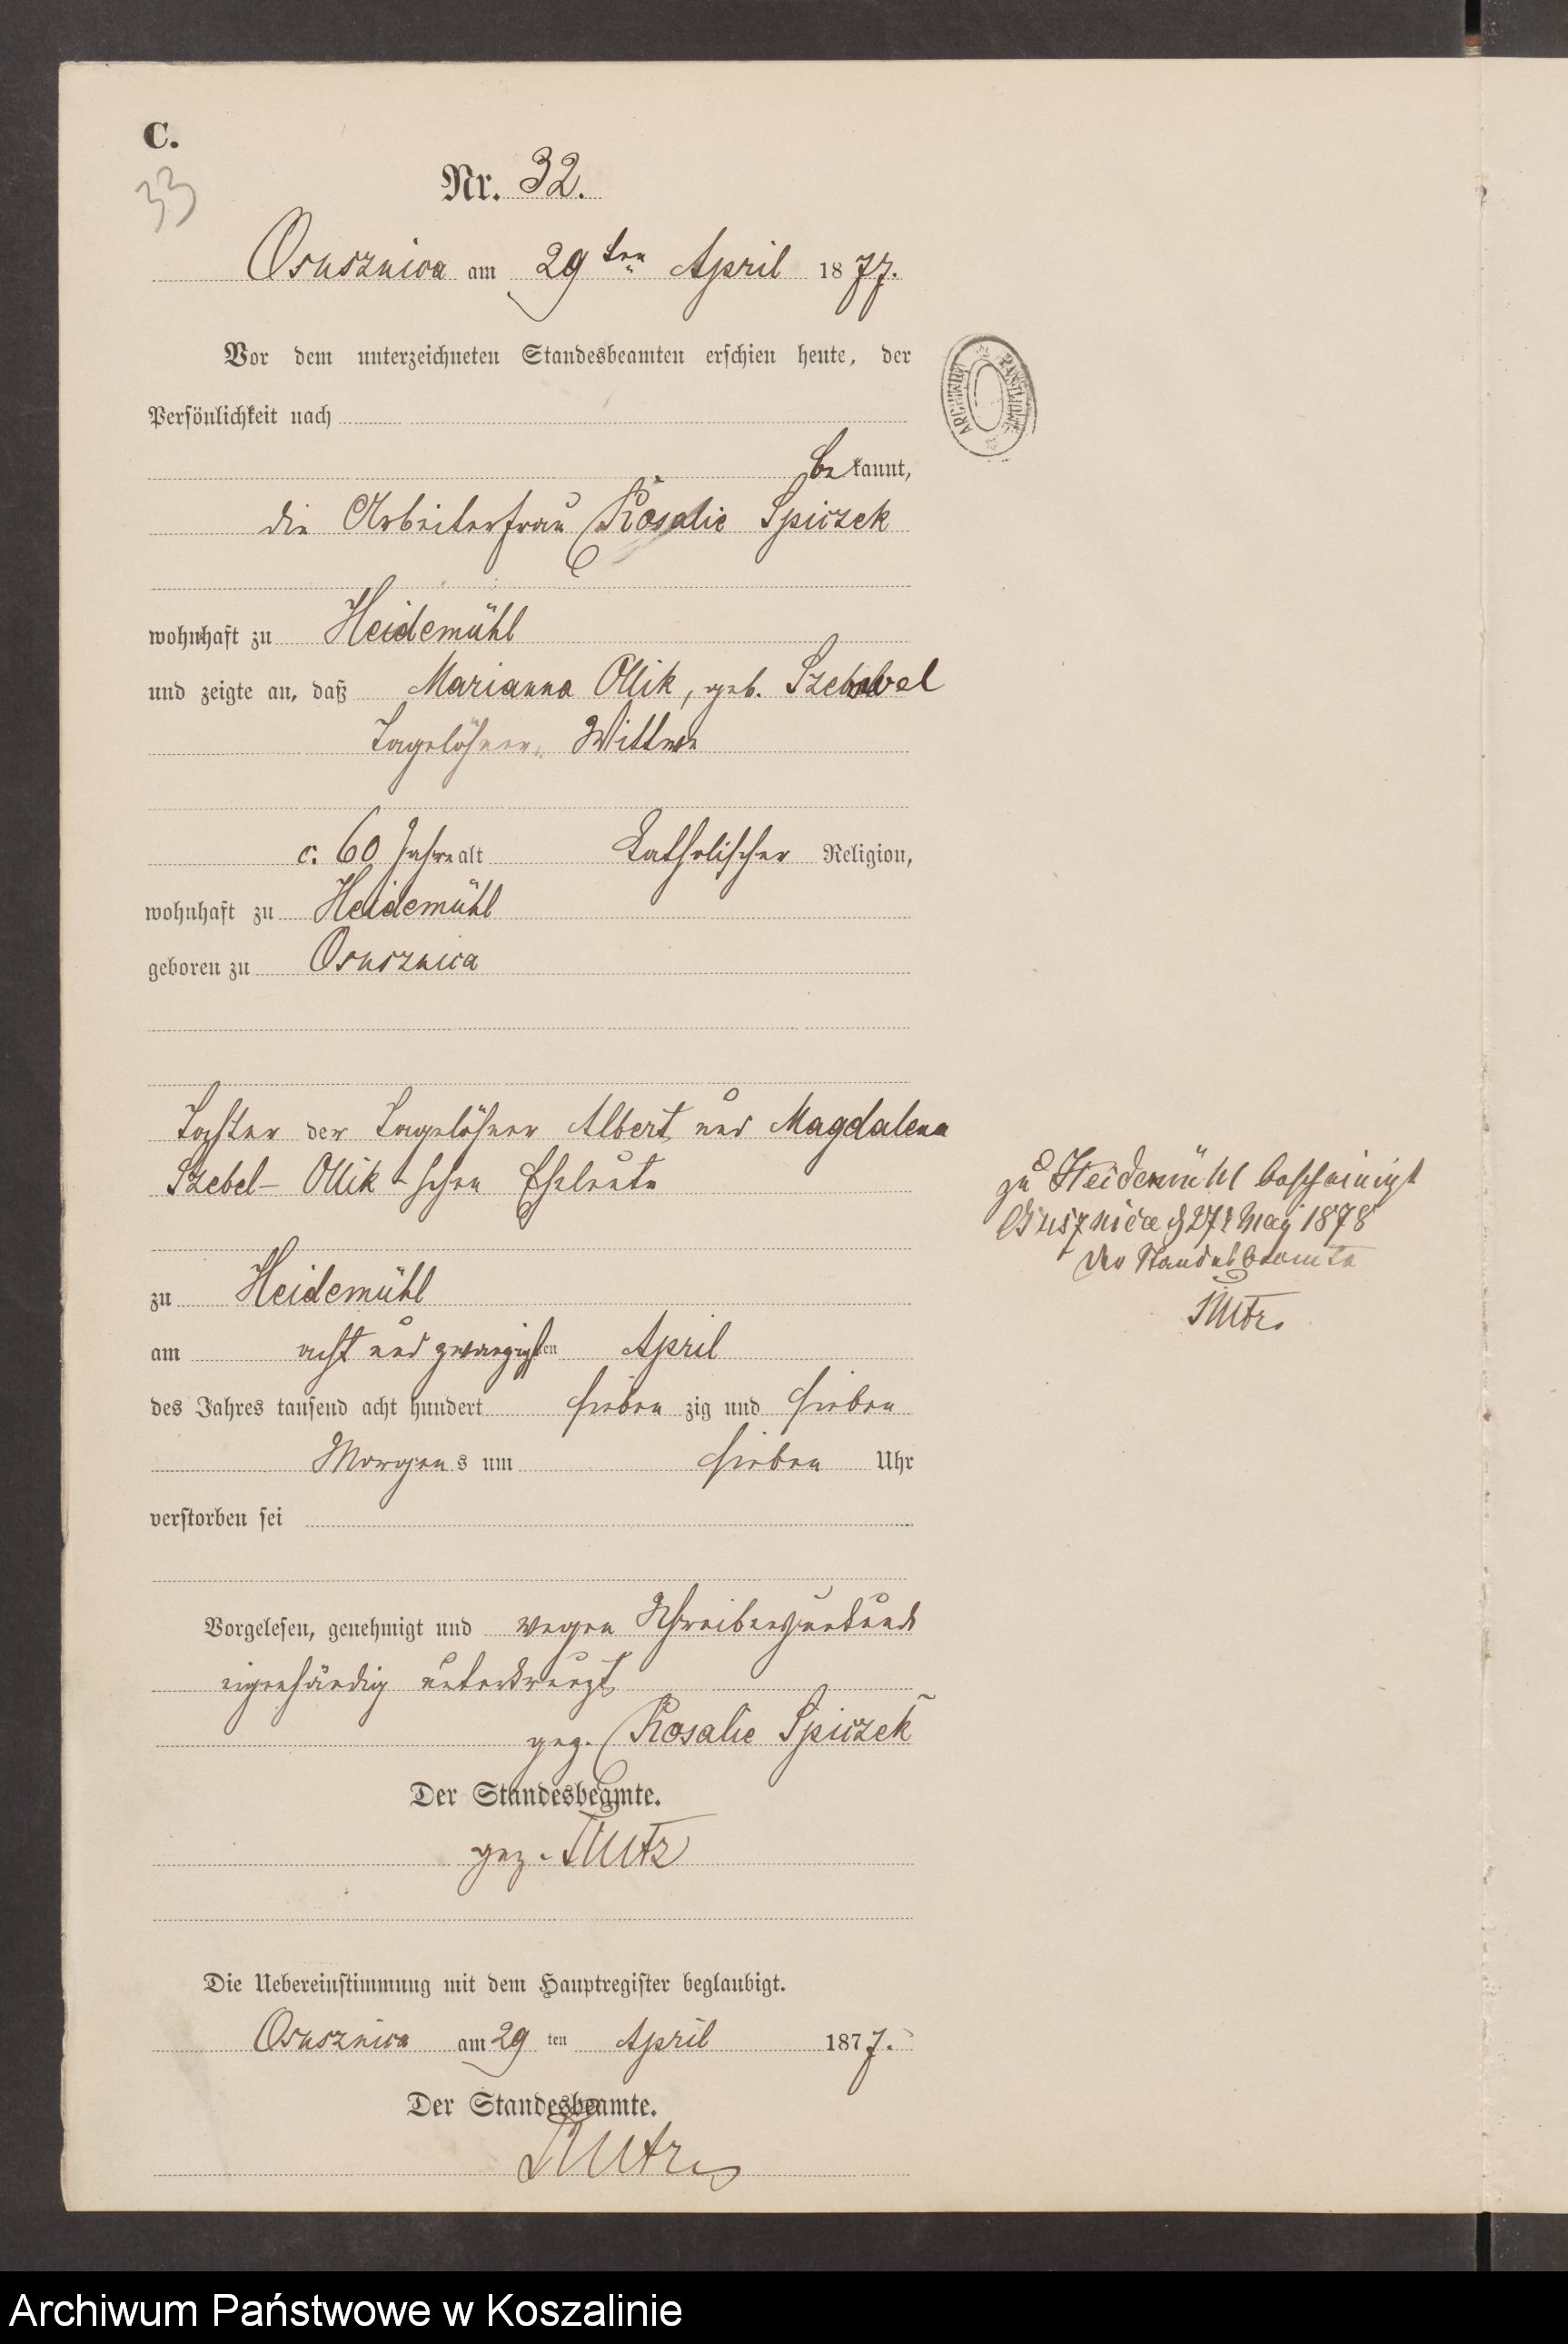 C.
33
Nr. 32.
Osusznica am 29ten April 1877.
Vor dem unterzeichneten Standesbeamten erschien heute, der
Persönlichkeit nach
bekannt,
die Arbeiterfrau Rosalie Spiczek
wohnhaft zu Heidemühl
und zeigte an, daß Marianna Ollik, geb. Szebel
Tagelöhner Wittwe
c. 60 Jahre alt katholischer Religion,
wohnhaft zu Heidemühl
geboren zu Osusznica
Tochter der Tagelöhner Albert und Magdalena
Szebel- Ollik-schen Eheleute
zu Heidemühl
am acht und zwanzigsten April
des Jahres tausend acht hundert siebenzig und sieben
Morgens um sieben Uhr
verstorben sei
Vorgelesen, genehmigt und wegen Schreibensunkunde
eigenhändig unterkreuzt
gez. Rosalie Spiczek
Der Standesbeamte.
gez.
Die Uebereinstimmung mit dem Hauptregister beglaubigt.
Osusznica am 29ten April 1877.
Der Standesbeamte.
ARCHIWUM PAŃSTWOWE
zu Heidemühl bescheinigt
Osusznica d 27t May 1878
Der Standesbeamte
Archiwum Państwowe w Koszalinie